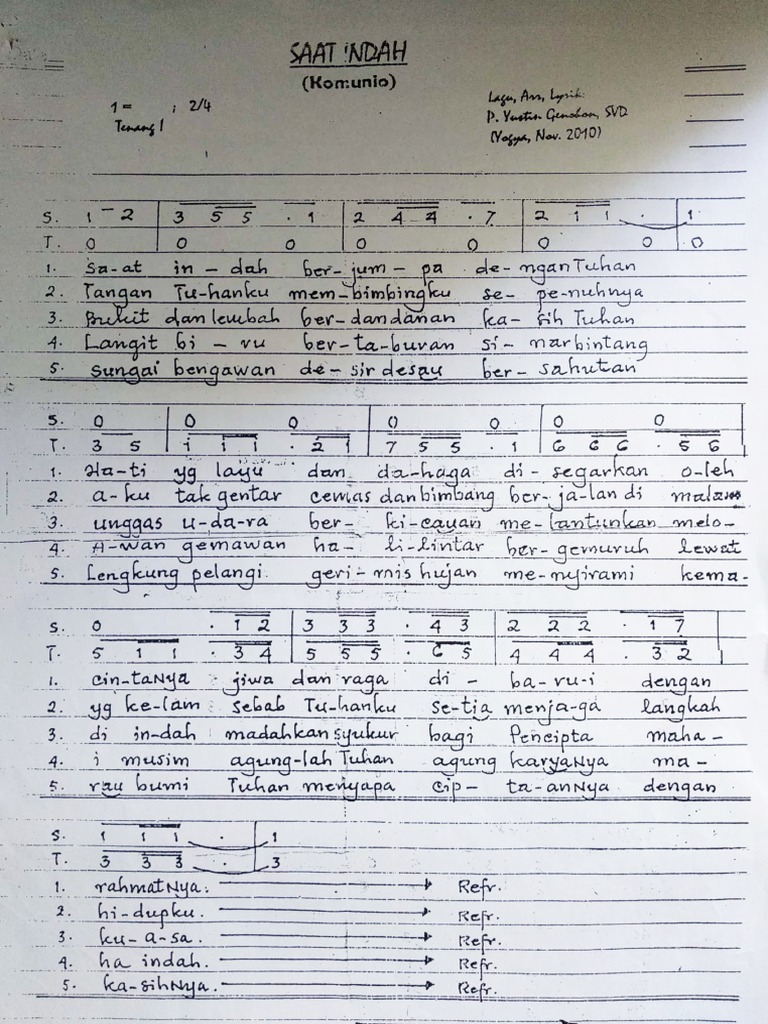 SAAT INDAH
(Komunio)
1 = ; 2/4
Tenang!
Lagu, Arr, Lyrik:
P. Yustin Genohon, SVD
(Yogya, Nov. 2010)
S. 1 2 | 3 5 5 . 1 | 2 4 4 . 7 | 2 1 1 . | 1
T. 0 | 0 0 | 0 0 | 0 0 | 0
1. Sa-at in - dah ber-jum - pa de-ngan Tuhan
2. Tangan Tu-hanku mem-bimbingku se- pe-nuhnya
3. Bukit dan lembah ber-dandanan ka- sih Tuhan
4. Langit bi - ru ber-ta-buran si- nar bintang
5. Sungai bengawan de-sir desau ber- sahutan
S. 0 | 0 0 | 0 0 | 0 0
T. 3 5 | 1 1 1 . 2 1 | 7 5 5 . 1 | 6 6 6 . 5 6
1. Ha-ti yg layu dan da-haga di- segarkan o-leh
2. a-ku tak gentar cemas dan bimbang ber-ja-lan di malam
3. unggas u-da-ra ber- ki-cauan me-lantunkan melo-
4. A-wan gemawan ha- li-lintar ber-gemuruh lewat
5. Lengkung pelangi geri-mis hujan me-nyirami kema-
S. 0 . 1 2 | 3 3 3 . 4 3 | 2 2 2 . 1 7 |
T. 5 1 1 . 3 4 | 5 5 5 . 6 5 | 4 4 4 . 3 2 |
1. cin-taNya jiwa dan raga di - ba-ru-i dengan
2. yg ke-lam sebab Tu-hanku se-tia menja-ga langkah
3. di in-dah madahkan syukur bagi Pencipta maha-
4. i musim agung-lah Tuhan agung karyaNya ma-
5. rau bumi Tuhan menyapa cip- ta-anNya dengan
S. 1 1 1 . | 1
T. 3 3 3 . | 3
1. rahmatNya. → Refr.
2. hi-dupku. → Refr.
3. ku-a-sa. → Refr.
4. ha indah. → Refr.
5. ka-sihNya. → Refr.